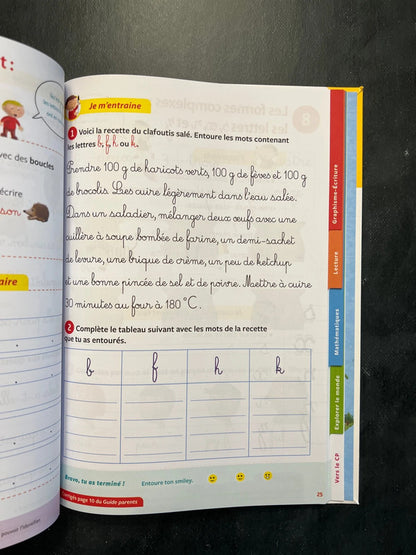 t :
vec des boucles
écrire
son
aire
Je m'entraine
1 Voici la recette du clafoutis salé. Entoure les mots contenant
les lettres b, f, h ou k.
Prendre 100 g de haricots verts, 100 g de fèves et 100 g
de brocolis. Les cuire légèrement dans l'eau salée.
Dans un saladier, mélanger deux œufs avec une
cuillère à soupe bombée de farine, un demi-sachet
de levure, une brique de crème, un peu de ketchup
et une bonne pincée de sel et de poivre. Mettre à cuire
30 minutes au four à 180 °C.
2 Complète le tableau suivant avec les mots de la recette
que tu as entourés.
b f h k
Bravo, tu as terminé ! Entoure ton smiley.
Corrigés page 10 du Guide parents
25
Graphisme-Écriture
Lecture
Mathématiques
Explorer le monde
Vers le CP
8 Les formes complexes